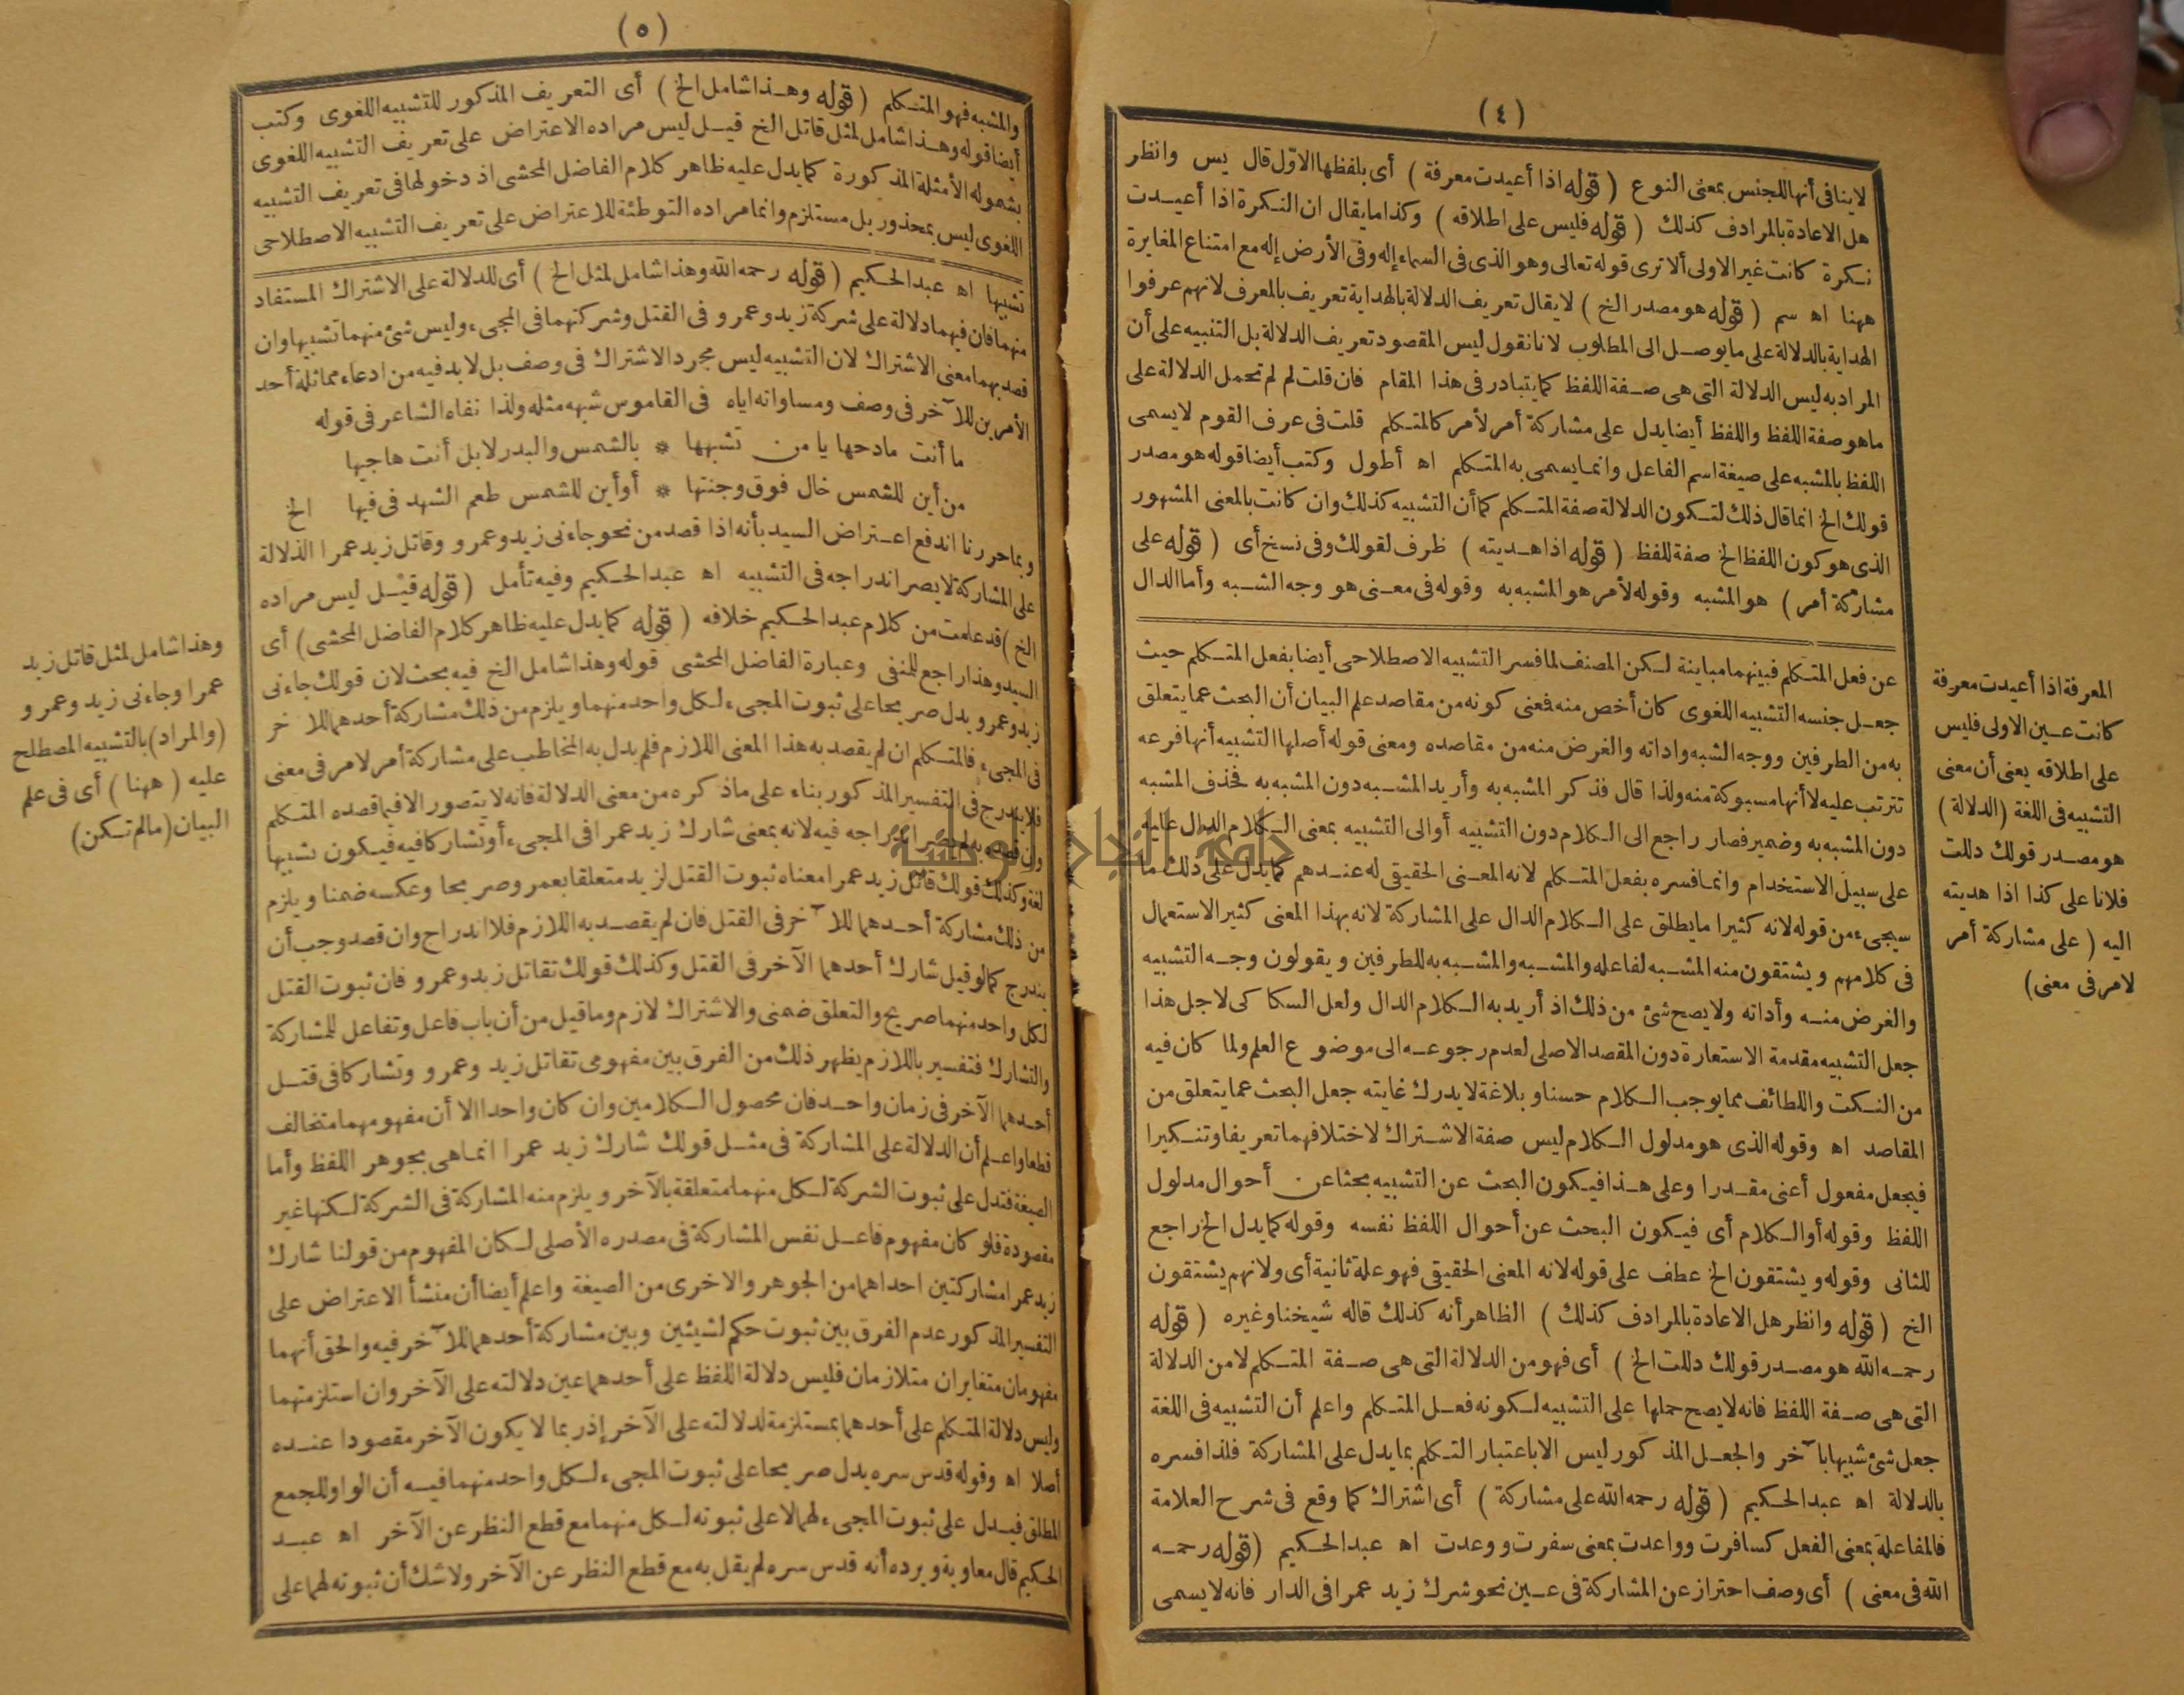 (٤)
لاينافى أنها للجنس بمعنى النوع (قوله اذا أعيدت معرفة) أى بلفظها الاوّل قال يس وانظر
هل الاعادة بالمرادف كذلك (قوله فليس على اطلاقه) وكذا ما يقال ان النكرة اذا أعيدت
نكرة كانت غير الاولى ألا ترى قوله تعالى وهو الذى فى السماء إله وفى الأرض إله مع امتناع المغايرة
ههنا اه سم (قوله هو مصدر الخ) لا يقال تعريف الدلالة بالهداية تعريف بالمعرف لانهم عرفوا
الهداية بالدلالة على ما يوصل الى المطلوب لانا نقول ليس المقصود تعريف الدلالة بل التنبيه على أن
المراد به ليس الدلالة التى هى صفة اللفظ كما يتبادر فى هذا المقام فان قلت لم لم تحمل الدلالة على
ما هو صفة اللفظ واللفظ أيضا يدل على مشاركة أمر لأمر كالمتكلم قلت فى عرف القوم لا يسمى
اللفظ بالمشبه على صيغة اسم الفاعل وانما يسمى به المتكلم اه أطول وكتب أيضا قوله هو مصدر
قولك الخ انما قال ذلك لتكون الدلالة صفة المتكلم كما أن التشبيه كذلك وان كانت بالمعنى المشهور
الذى هو كون اللفظ الخ صفة للفظ (قوله اذا هديته) ظرف لقولك وفى نسخ أى (قوله على
مشاركة أمر) هو المشبه وقوله لأمر هو المشبه به وقوله فى معنى هو وجه الشبه وأما الدال
عن فعل المتكلم فبينهما مباينة لكن المصنف لما فسر التشبيه الاصطلاحى أيضا بفعل المتكلم حيث
جعل جنسه التشبيه اللغوى كان أخص منه فمعنى كونه من مقاصد علم البيان أن البحث عما يتعلق
به من الطرفين ووجه الشبه واداته والغرض منه من مقاصده ومعنى قوله أصلها التشبيه أنها فرعه
تترتب عليه لا أنها مسبوكة منه ولذا قال فذكر المشبه به وأريد المشبه دون المشبه به فحذف المشبه
دون المشبه به وضمير فصار راجع الى الكلام دون التشبيه أو الى التشبيه بمعنى الكلام الدال عليه
على سبيل الاستخدام وانما فسره بفعل المتكلم لانه المعنى الحقيقى له عندهم كما يدل على ذلك ما
سيجىء من قوله لانه كثيرا ما يطلق على الكلام الدال على المشاركة لانه بهذا المعنى كثير الاستعمال
فى كلامهم ويشتقون منه المشبه لفاعله والمشبه والمشبه به للطرفين ويقولون وجه التشبيه
والغرض منه وأداته ولا يصح شئ من ذلك اذ أريد به الكلام الدال ولعل السكاكى لاجل هذا
جعل التشبيه مقدمة الاستعارة دون المقصد الاصلى لعدم رجوعه الى موضوع العلم ولما كان فيه
من النكت واللطائف مما يوجب الكلام حسنا وبلاغة لا يدرك غايته جعل البحث عما يتعلق من
المقاصد اه وقوله الذى هو مدلول الكلام ليس صفة الاشتراك لاختلافهما تعريفا وتنكيرا
فيجعل مفعول أعنى مقدرا وعلى هذا فيكون البحث عن التشبيه بحثا عن أحوال مدلول
اللفظ وقوله أو الكلام أى فيكون البحث عن أحوال اللفظ نفسه وقوله كما يدل الخ راجع
للثانى وقوله ويشتقون الخ عطف على قوله لانه المعنى الحقيقى فهو علة ثانية أى ولانهم يشتقون
الخ (قوله وانظر هل الاعادة بالمرادف كذلك) الظاهر أنه كذلك قاله شيخنا وغيره (قوله
رحمه الله هو مصدر قولك دللت الخ) أى فهو من الدلالة التى هى صفة المتكلم لا من الدلالة
التى هى صفة اللفظ فانه لا يصح حملها على التشبيه لكونه فعل المتكلم واعلم أن التشبيه فى اللغة
جعل شئ شبيها بآخر والجعل المذكور ليس الا باعتبار التكلم بما يدل على المشاركة فلذا فسره
بالدلالة اه عبد الحكيم (قوله رحمه الله على مشاركة) أى اشتراك كما وقع فى شرح العلامة
فالمفاعلة بمعنى الفعل كسافرت وواعدت بمعنى سفرت ووعدت اه عبد الحكيم (قوله رحمه
الله فى معنى) أى وصف احتراز عن المشاركة فى عين نحو شرك زيد عمرا فى الدار فانه لا يسمى
المعرفة اذا أعيدت معرفة
كانت عين الاولى فليس
على اطلاقه يعنى أن معنى
التشبيه فى اللغة (الدلالة)
هو مصدر قولك دللت
فلانا على كذا اذا هديته
اليه (على مشاركة أمر
لامر فى معنى)
(٥)
والمشبه فهو المتكلم (قوله وهذا شامل الخ) أى التعريف المذكور للتشبيه اللغوى وكتب
أيضا قوله وهذا شامل لمثل قاتل الخ قيل ليس مراده الاعتراض على تعريف التشبيه اللغوى
بشموله الأمثلة المذكورة كما يدل عليه ظاهر كلام الفاضل المحشى اذ دخولها فى تعريف التشبيه
اللغوى ليس بمحذور بل مستلزم وانما مراده التوطئة للاعتراض على تعريف التشبيه الاصطلاحى
تشبيها اه عبد الحكيم (قوله رحمه الله وهذا شامل لمثل الخ) أى للدلالة على الاشتراك المستفاد
منهما فان فيهما دلالة على شركة زيد وعمرو فى القتل وشركتهما فى المجىء وليس شئ منهما تشبيها وان
قصد بهما معنى الاشتراك لان التشبيه ليس مجرد الاشتراك فى وصف بل لا بد فيه من ادعاء مماثلة أحد
الأمرين للآخر فى وصف ومساواته اياه فى القاموس شبهه مثله ولذا نفاه الشاعر فى قوله
ما أنت مادحها يا من تشبهها * بالشمس والبدر لا بل أنت هاجيها
من أين للشمس خال فوق وجنتها * أو أين للشمس طعم الشهد فى فيها الخ
وبما حررنا اندفع اعتراض السيد بأنه اذا قصد من نحو جاءنى زيد وعمرو وقاتل زيد عمرا الدلالة
على المشاركة لا يضر اندراجه فى التشبيه اه عبد الحكيم وفيه تأمل (قوله قيل ليس مراده
الخ) قد علمت من كلام عبد الحكيم خلافه (قوله كما يدل عليه ظاهر كلام الفاضل المحشى) أى
السيد وهذا راجع للمنفى وعبارة الفاضل المحشى قوله وهذا شامل الخ فيه بحث لان قولك جاءنى
زيد وعمرو يدل صريحا على ثبوت المجىء لكل واحد منهما ويلزم من ذلك مشاركة أحدهما للآخر
فى المجىء فالمتكلم ان لم يقصد به هذا المعنى اللازم فلم يدل به المخاطب على مشاركة أمر لامر فى معنى
فلا يندرج فى التفسير المذكور بناء على ما ذكره من معنى الدلالة فانه لا يتصور الا فيما قصده المتكلم
وان قصد به لم يضر اندراجه فيه لانه بمعنى شارك زيد عمرا فى المجىء أو تشاركا فيه فيكون تشبيها
لغة وكذلك قولك قاتل زيد عمرا معناه ثبوت القتل لزيد متعلقا بعمرو صريحا وعكسه ضمنا ويلزم
من ذلك مشاركة أحدهما للآخر فى القتل فان لم يقصد به اللازم فلا اندراج وان قصد وجب أن
يندرج كما لو قيل شارك أحدهما الآخر فى القتل وكذلك قولك تقاتل زيد وعمرو فان ثبوت القتل
لكل واحد منهما صريح والتعلق ضمنى والاشتراك لازم وما قيل من أن باب فاعل وتفاعل للمشاركة
والتشارك فتفسير باللازم يظهر ذلك من الفرق بين مفهومى تقاتل زيد وعمرو وتشاركا فى قتل
أحدهما الآخر فى زمان واحد فان محصول الكلامين وان كان واحدا الا أن مفهومهما متخالف
قطعا واعلم أن الدلالة على المشاركة فى مثل قولك شارك زيد عمرا انما هى بجوهر اللفظ وأما
الصيغة فتدل على ثبوت الشركة لكل منهما متعلقة بالآخر ويلزم منه المشاركة فى الشركة لكنها غير
مقصودة فلو كان مفهوم فاعل نفس المشاركة فى مصدره الأصلى لكان المفهوم من قولنا شارك
زيد عمرا مشاركتين احداهما من الجوهر والاخرى من الصيغة واعلم أيضا أن منشأ الاعتراض على
التفسير المذكور عدم الفرق بين ثبوت حكم لشيئين وبين مشاركة أحدهما للآخر فيه والحق أنهما
مفهومان متغايران متلازمان فليس دلالة اللفظ على أحدهما عين دلالته على الآخر وان استلزمتهما
وليس دلالة المتكلم على أحدهما بمستلزمة لدلالته على الآخر إذ ربما لا يكون الآخر مقصودا عنده
أصلا اه وقوله قدس سره يدل صريحا على ثبوت المجىء لكل واحد منهما فيه أن الواو للجمع
المطلق فيدل على ثبوت المجىء لهما لا على ثبوته لكل منهما مع قطع النظر عن الآخر اه عبد
الحكيم قال معاوية ويرده أنه قدس سره لم يقل به مع قطع النظر عن الآخر ولا شك أن ثبوته لهما على
وهذا شامل لمثل قاتل زيد
عمرا وجاءنى زيد وعمرو
(والمراد) بالتشبيه المصطلح
عليه (ههنا) أى فى علم
البيان (ما لم تكن)
جامعة النجاح الوطنية